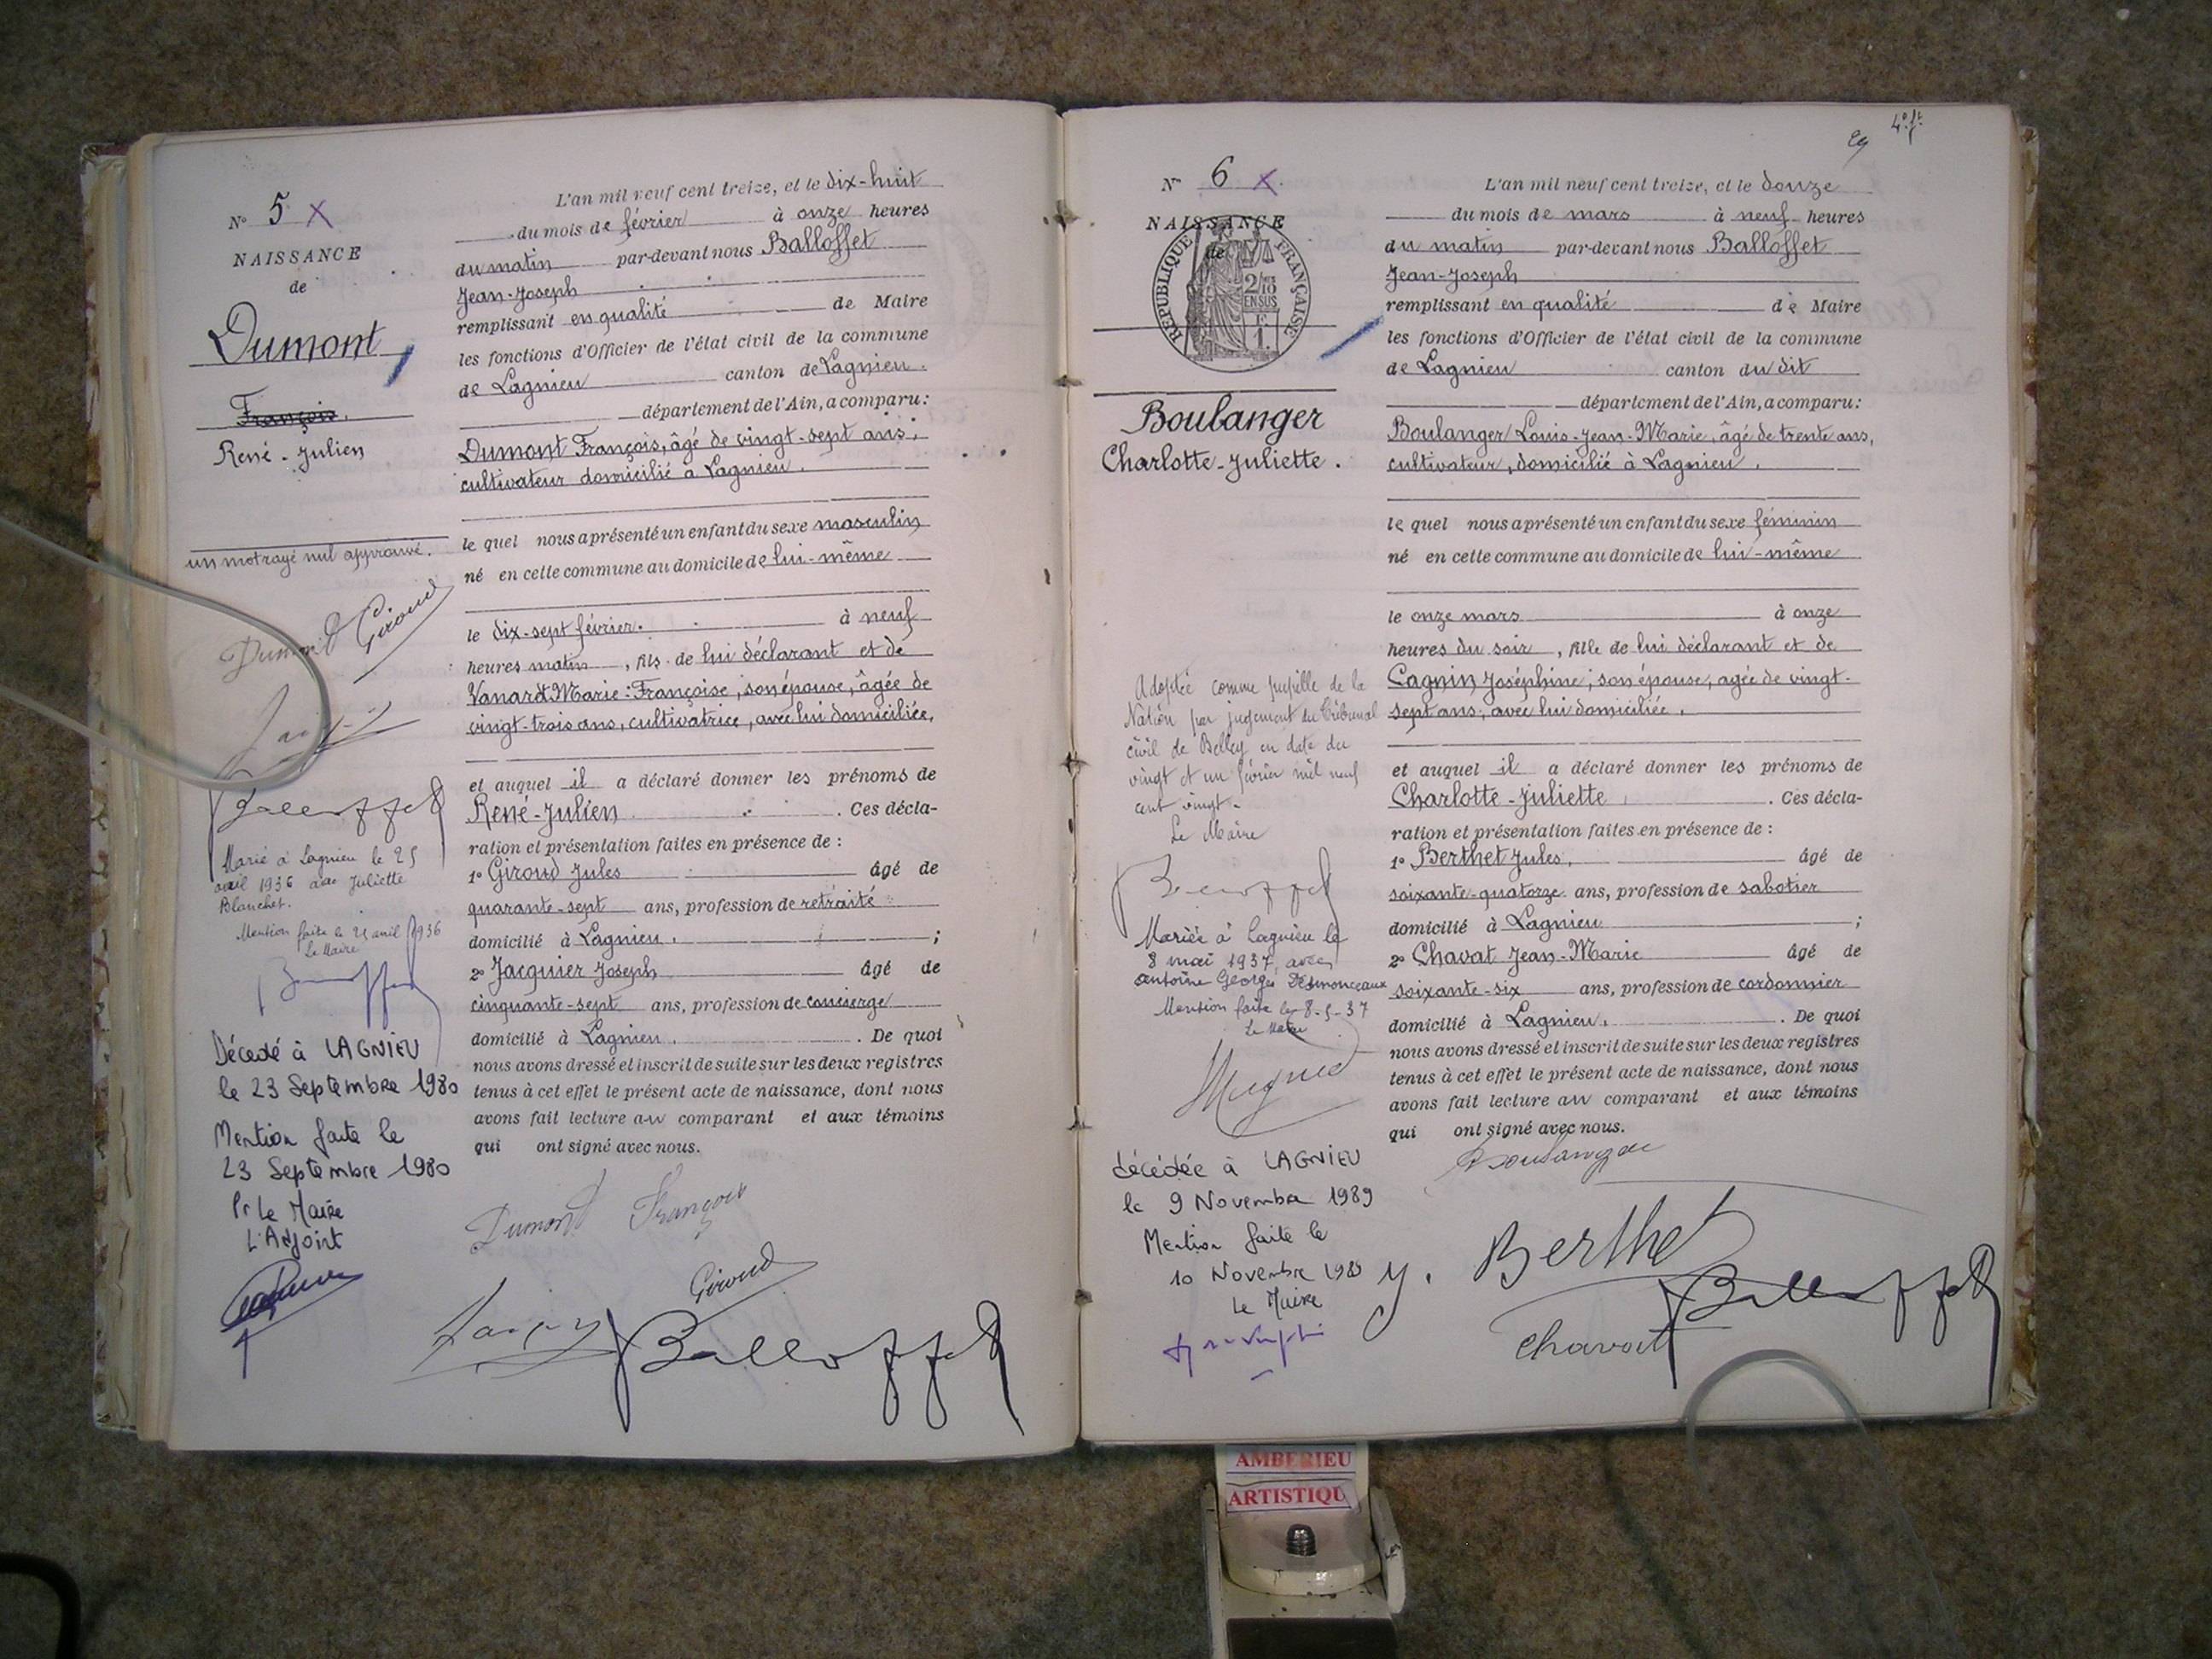 N° 5 X
NAISSANCE
de
Dumont
François.
René-Julien
un mot rayé nul approuvé.
Dumont Giroud
Balloffet
Marié à Lagnieu le 25
avril 1936 avec Juliette
Blanchet.
Mention faite le 25 avril 1936
Le Maire
Décédé à LAGNIEU
le 23 Septembre 1980
Mention faite le
23 Septembre 1980
Pr Le Maire
L'Adjoint
L'an mil neuf cent treize, et le dix-huit
du mois de février à onze heures
du matin par-devant nous Balloffet
Jean-Joseph
remplissant en qualité de Maire
les fonctions d'Officier de l'état civil de la commune
de Lagnieu canton de Lagnieu.
département de l'Ain, a comparu:
Dumont François, âgé de vingt-sept ans,
cultivateur domicilié à Lagnieu.
le quel nous a présenté un enfant du sexe masculin
né en cette commune au domicile de lui-même
le dix-sept février. à neuf
heures matin, fils de lui déclarant et de
Vanard Marie-Françoise, son épouse, âgée de
vingt-trois ans, cultivatrice, avec lui domiciliée,
et auquel il a déclaré donner les prénoms de
René-Julien. Ces décla-
ration et présentation faites en présence de :
1° Giroud Jules âgé de
quarante-sept ans, profession de retraité
domicilié à Lagnieu. ;
2° Jacquier Joseph âgé de
cinquante-sept ans, profession de concierge
domicilié à Lagnieu. . De quoi
nous avons dressé et inscrit de suite sur les deux registres
tenus à cet effet le présent acte de naissance, dont nous
avons fait lecture au comparant et aux témoins
qui ont signé avec nous.
Dumont François
Giroud
Balloffet
4° ft.
N° 6 X
NAISSANCE
de
REPUBLIQUE FRANÇAISE
2/10
EN SUS
1.
Boulanger
Charlotte-Juliette.
Adoptée comme pupille de la
Nation par jugement du Tribunal
civil de Belley en date du
vingt et un février mil neuf
cent vingt.
Le Maire
Balloffet
Mariée à Lagnieu le
8 mai 1937, avec
Antoine Georges Desmonceaux
Mention faite le 8-5-37
Le Maire
décédée à LAGNIEU
le 9 Novembre 1989
Mention faite le
10 Novembre 1989
Le Maire
L'an mil neuf cent treize, et le douze
du mois de mars à neuf heures
du matin par-devant nous Balloffet
Jean-Joseph
remplissant en qualité de Maire
les fonctions d'Officier de l'état civil de la commune
de Lagnieu canton du dit
département de l'Ain, a comparu:
Boulanger Louis-Jean-Marie, âgé de trente ans,
cultivateur, domicilié à Lagnieu.
le quel nous a présenté un enfant du sexe féminin
né en cette commune au domicile de lui-même
le onze mars à onze
heures du soir, fille de lui déclarant et de
Cagnin Joséphine, son épouse, âgée de vingt-
sept ans, avec lui domiciliée.
et auquel il a déclaré donner les prénoms de
Charlotte-Juliette. Ces décla-
ration et présentation faites en présence de :
1° Berthet Jules, âgé de
soixante-quatorze ans, profession de sabotier
domicilié à Lagnieu ;
2° Chavat Jean-Marie âgé de
soixante-six ans, profession de cordonnier
domicilié à Lagnieu. . De quoi
nous avons dressé et inscrit de suite sur les deux registres
tenus à cet effet le présent acte de naissance, dont nous
avons fait lecture au comparant et aux témoins
qui ont signé avec nous.
Boulanger
J. Berthet
Balloffet
Chavat
AMBERIEU
ARTISTIQU